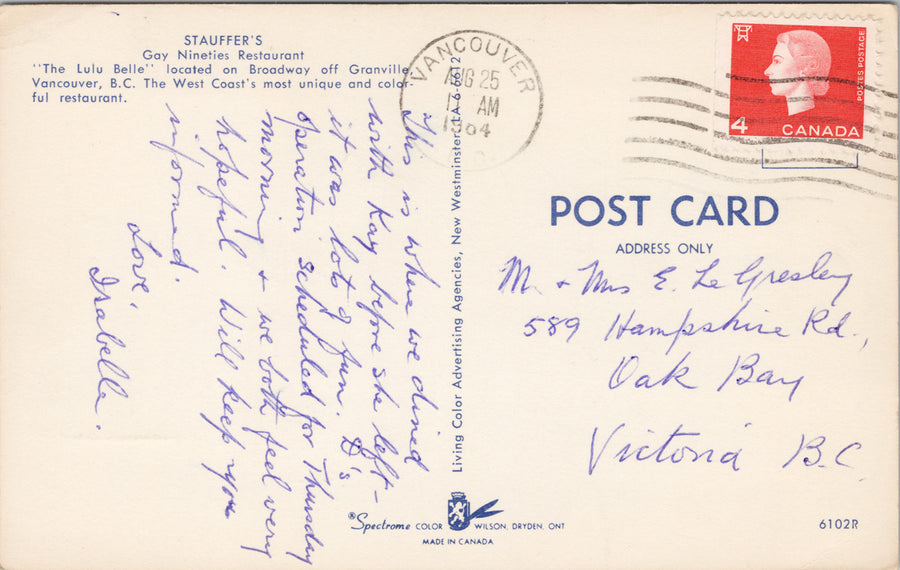 STAUFFER'S
Gay Nineties Restaurant
"The Lulu Belle" located on Broadway off Granville
Vancouver, B.C. The West Coast's most unique and color-
ful restaurant.
This is where we dined
with Kay before she left –
it was lots of fun. D's
operation scheduled for Thursday
morning & we both feel very
hopeful. Will keep you
informed.
Love,
Isabella.
Living Color Advertising Agencies, New Westminster, LA
VANCOUVER
AUG 25
AM
1964
4
CANADA
POSTES POSTAGE
POST CARD
ADDRESS ONLY
Mr. & Mrs E. Le Gresley
589 Hampshire Rd.,
Oak Bay
Victoria B.C
®Spectrome COLOR WILSON, DRYDEN, ONT
MADE IN CANADA
6102R